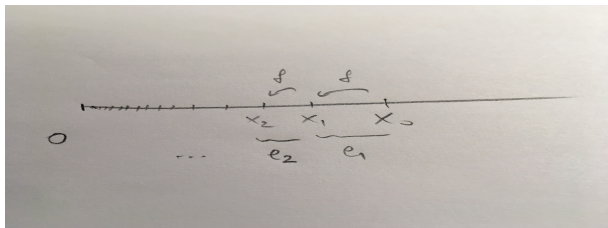 f f
x₂ x₁ x₀
0
... e₂ e₁